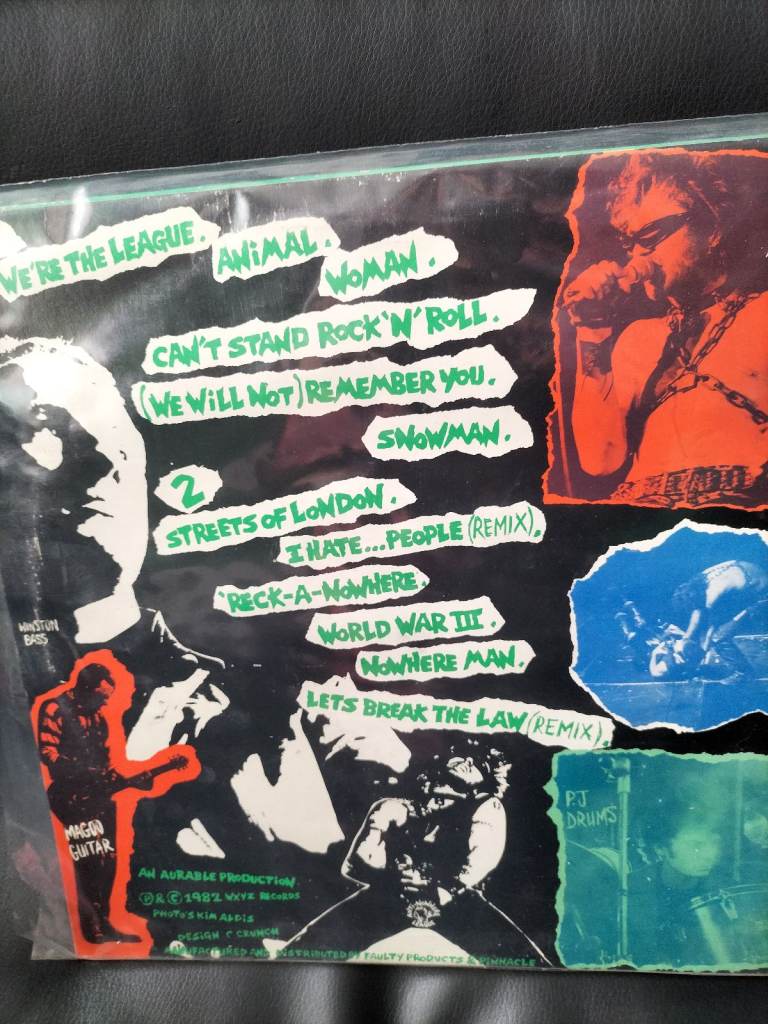 WE'RE THE LEAGUE.
ANiMAL.
WOMAN.
CAN'T STAND ROCK 'N' ROLL.
(WE WiLL NOT) REMEMBER YOU.
SNOWMAN.
2
STREETS OF LONDON.
I HATE...PEOPLE (REMIX).
'RECK-A-NOWHERE.
WORLD WAR III.
NOWHERE MAN.
LETS BREAK THE LAW (REMIX).
WINSTON
BASS
MAGOO
GUITAR
P.J
DRUMS
AN AURABLE PRODUCTION
℗ & © 1982 WXYZ RECORDS
PHOTO'S KIM ALDIS
DESIGN C CRUNCH
MANUFACTURED AND DISTRIBUTED BY FAULTY PRODUCTS & PINNACLE